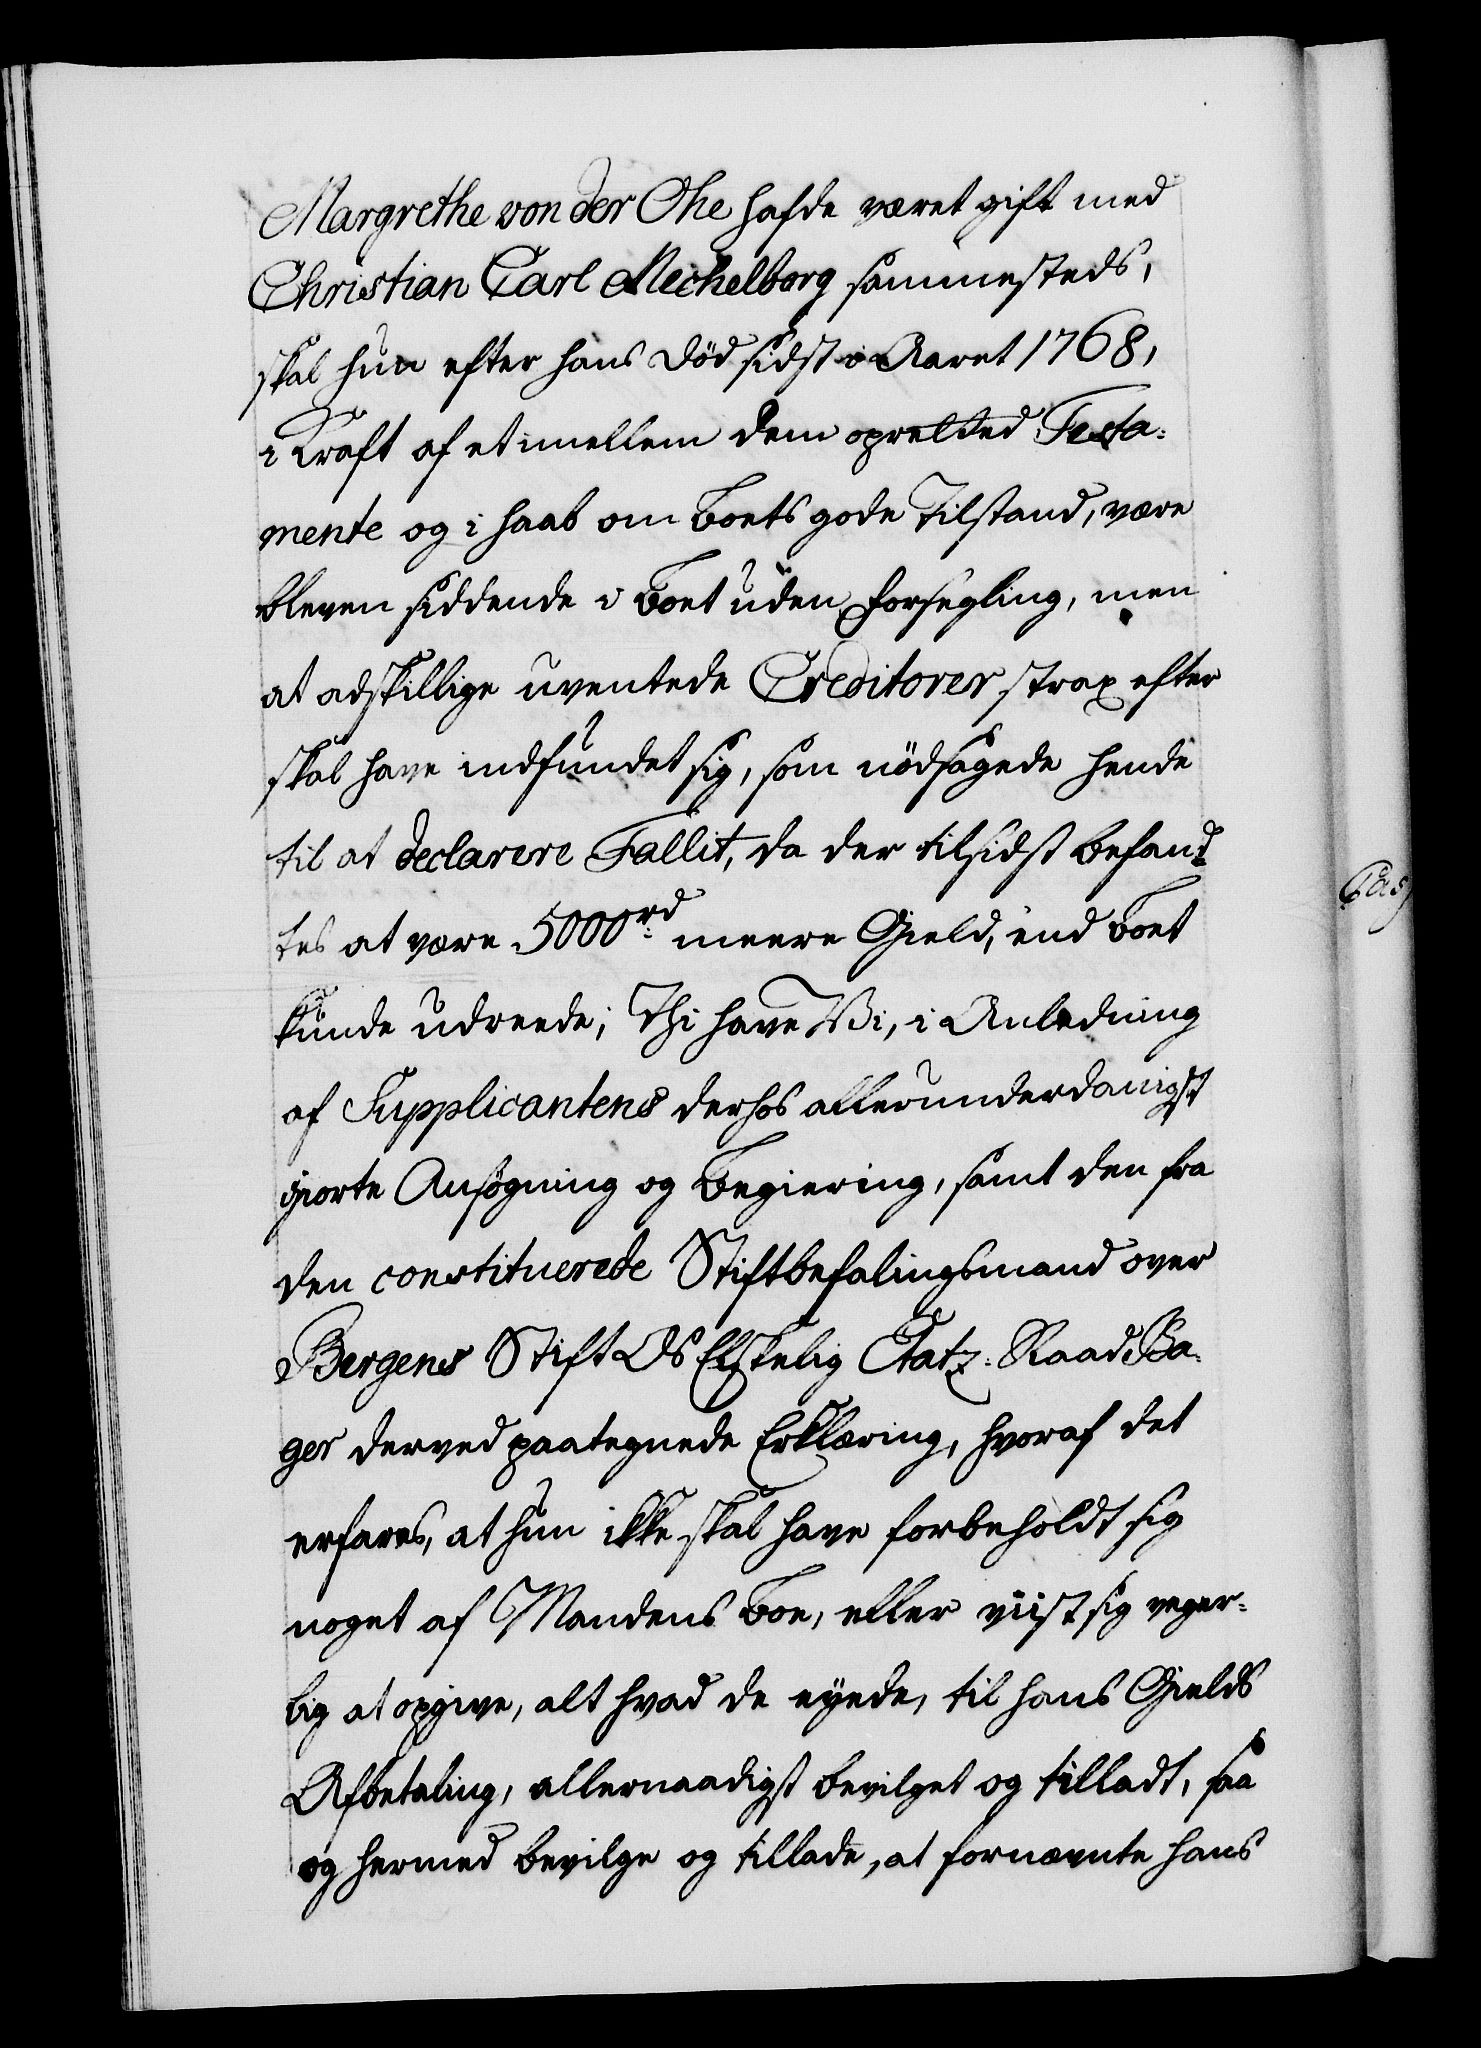 Margrethe von der Ohe hafde været gift med
Christian Carl Mechelborg sammesteds,
skal hun efter hans Död sidst i Aaret 1768,
i Kraft af et imellem dem opretted Testa-
mente og i Haab om Boets gode Tilstand, være
bleven siddende i Boet uden Forsegling, men
at adskillige uventede Creditorer strax efter
skal have indfundet sig, som nödsagede hende
til at declarere Fallit, da der tilsidst befand-
tes at være 5000 rd meere Gield, end Boet
kunde udreede; Thi have Vi, i Anledning
af Supplicantens derhos allerunderdanigst
giorte Ansögning og Begiering, samt den fra
den constituerede Stiftbefalingsmand over
Bergens Stift Os Elskelig Etatz-Raad Ba-
ger derved paategnede Erklæring, hvoraf det
erfares, at hun ikke skal have forbeholdt sig
noget af Mandens Boe, eller viist sig veger-
lig at opgive, alt hvad de eyede, til hans Gields
Afbetaling, allernaadigst bevilget og tilladt, saa
og hermed bevilge og tillade, at fornævnte hans